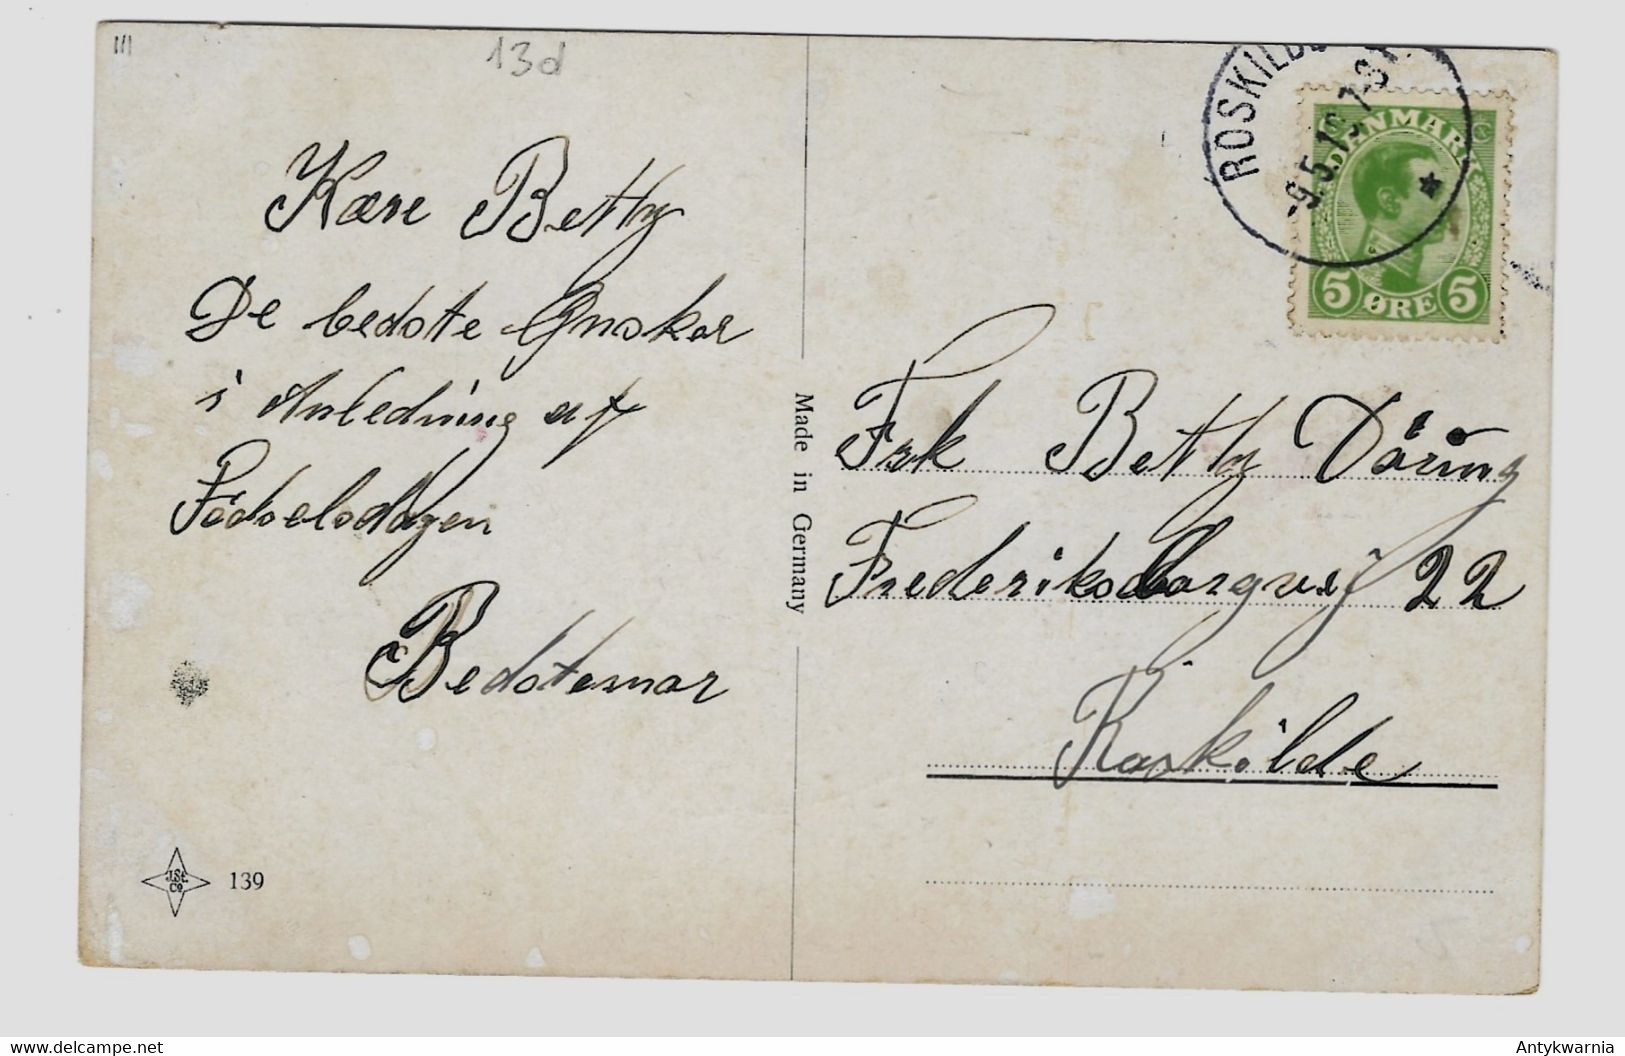 13d
Kære Betty
De bedste Ønsker
i Anledning af
Födselsdagen
Bedstemor
J.St. Co
139
Made in Germany
ROSKILDE
-9.5.19. 7-8
DANMARK
5 ØRE 5
Frk Betty Döring
Frederiksborgvej 22
Roskilde
www.delcampe.net
Antykwarnia